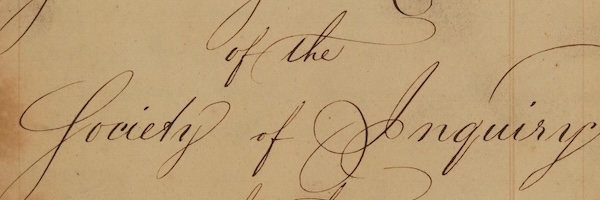 of the
Society of Inquiry